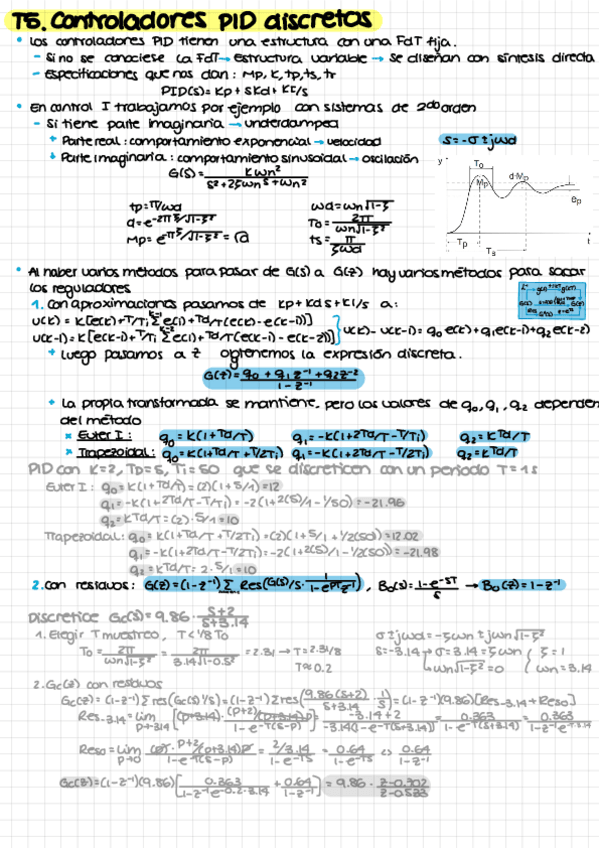 T5. Controladores PID discretos
• Los controladores PID tienen una estructura con una FdT fija.
- Si no se conociese la FdT → estructura variable → se diseñan con síntesis directa
- Especificaciones que nos dan: Mp, K, tp, ts, tr
PID(s) = Kp + sKd + KI/s
• En control I trabajamos por ejemplo con sistemas de 2do orden
- Si tiene parte imaginaria → underdamped
+ Parte real: comportamiento exponencial → velocidad
s = -σ ± jωd
+ Parte imaginaria: comportamiento sinusoidal → oscilación
G(s) = Kωn² / s² + 2ζωn s + ωn²
tp = π/ωd
ωd = ωn√1-ζ²
d = e^-2πζ/√1-ζ²
To = 2π / ωn√1-ζ²
Mp = e^-πζ/√1-ζ² = √d
ts = π / ζωd
y To d·Mp Mp ep Tp Ts t
• Al haber varios métodos para pasar de G(s) a G(z) hay varios métodos para sacar
los reguladores
1. Con aproximaciones pasamos de Kp + Kd s + KI/s a:
u(k) = K[e(k) + T/Ti Σ e(i) + Td/T (e(k) - e(k-1))]
u(k-1) = K[e(k-1) + T/Ti Σ e(i) + Td/T (e(k-1) - e(k-2))]
u(k) - u(k-1) = q0 e(k) + q1 e(k-1) + q2 e(k-2)
+ Luego pasamos a z obtenemos la expresión discreta.
G(z) = q0 + q1 z⁻¹ + q2 z⁻² / 1 - z⁻¹
+ La propia transformada se mantiene, pero los valores de q0, q1, q2 dependen
del método
* Euler I: q0 = K(1+Td/T) q1 = -K(1+2Td/T - T/Ti) q2 = KTd/T
* Trapezoidal: q0 = K(1+Td/T + T/2Ti) q1 = -K(1+2Td/T - T/2Ti) q2 = KTd/T
PID con K=2, Tp=5, Ti=50 que se discreticen con un periodo T=1s
Euler I: q0 = K(1+Td/T) = (2)(1+5/1) = 12
q1 = -K(1+2Td/T - T/Ti) = -2(1+2(5)/1 - 1/50) = -21.96
q2 = KTd/T = (2)·5/1 = 10
Trapezoidal: q0 = K(1+Td/T + T/2Ti) = (2)(1+5/1 + 1/2(50)) = 12.02
q1 = -K(1+2Td/T - T/2Ti) = -2(1+2(5)/1 - 1/2(50)) = -21.98
q2 = KTd/T = 2·5/1 = 10
2. Con residuos: G(z) = (1-z⁻¹) Σ Res(G(s)/s · 1/1-e^pT z⁻¹), B0(s) = 1-e^-sT / s → B0(z) = 1-z⁻¹
Discretice Gc(s) = 9.86 · s+2 / s+3.14
1. Elegir T muestreo, T < 1/8 To
σ ± jωd = -ζωn ± jωn√1-ζ²
To = 2π / ωn√1-ζ² = 2π / 3.14√1-0.5² = 2.31 → T = 2.31/8
s = -3.14 → σ = 3.14 = ζωn { ζ = 1
T ≈ 0.2
→ ωn√1-ζ² = 0 ωn = 3.14
2. Gc(z) con residuos
Gc(z) = (1-z⁻¹) Σ res(Gc(s)/s) = (1-z⁻¹) Σ res(9.86(s+2) / s+3.14 · 1/s) = (1-z⁻¹)(9.86)[Res-3.14 + Res0]
Res-3.14 = Lim p→-3.14 [(p+3.14) · (p+2)/(p+3.14)p / 1-e^-T(s-p)] = -3.14+2 / -3.14(1-e^-T(s+3.14)) = 0.363 / 1-e^-T(s+3.14) = 0.363 / 1-z⁻¹e^-T·3.14
Res0 = Lim p→0 (p) · p+2/(p+3.14)p / 1-e^-T(s-p) = 2/3.14 / 1-e^-Ts = 0.64 / 1-e^-Ts ⇔ 0.64 / 1-z⁻¹
Gc(z) = (1-z⁻¹)(9.86)[0.363 / 1-z⁻¹e^-0.2·3.14 + 0.64 / 1-z⁻¹] = 9.86 · z-0.702 / z-0.533